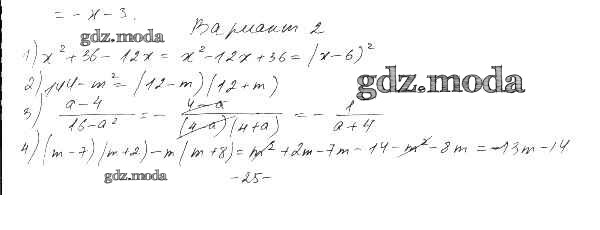 = - x - 3.
gdz.moda
Вариант 2
1) x² + 36 - 12x = x² - 12x + 36 = (x - 6)²
2) 144 - m² = (12 - m)(12 + m)
gdz.moda
3) (a - 4)/(16 - a²) = - (4 - a)/((4 - a)(4 + a)) = - 1/(a + 4)
4) (m - 7)(m + 2) - m(m + 8) = m² + 2m - 7m - 14 - m² - 8m = -13m - 14
gdz.moda
- 25 -